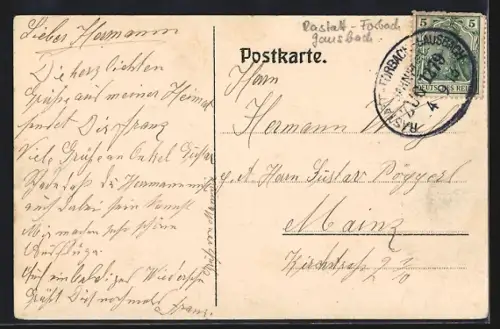 Lieber Hermann
Die herzlichsten
Grüße aus meiner Heimat
sendet Dir Franz
Viele Grüße an Onkel Gustav
Schade daß du Hermann nicht
auch dabei sein kannst
Wir machen sehr schöne
Ausflüge.
Auf ein baldiges Wiedersehn
Grüßt Dich nochmals
Franz.
Rastatt - Forbach
Gausbach
Postkarte.
5 5
DEUTSCHES REICH
RASTATT - FORBACH - GAUSBACH
BAHNPOST
ZUG 1278
4 9
Herrn
Hermann
p. A. Herrn Gustav Pöggerl
Mainz